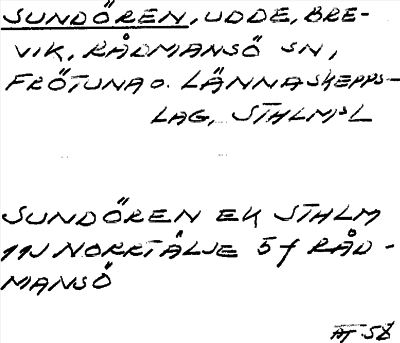 SUNDÖREN, UDDE, BRE-
VIK, RÅDMANSÖ SN,
FRÖTUNA O. LÄNNA SKEPPS-
LAG, STHLMS L
SUNDÖREN EK STHLM
11J NORRTÄLJE 5 f RÅD-
MANSÖ
AT 58